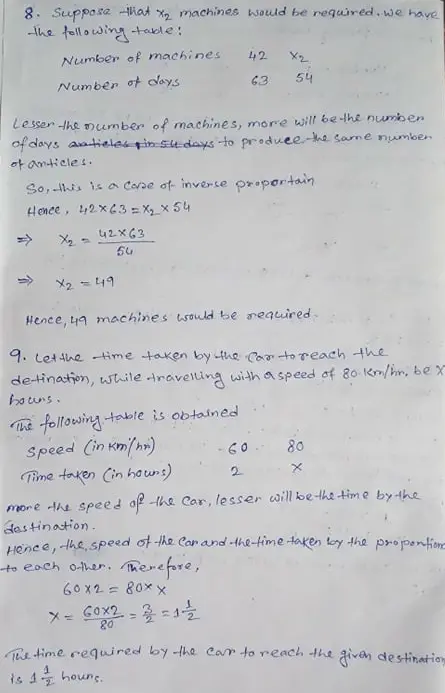 8. Suppose that x₂ machines would be required. We have
the following table:
Number of machines 42 x₂
Number of days 63 54
Lesser the number of machines, more will be the number
of days articles in 54 days to produce the same number
of articles.
So, this is a case of inverse proportain
Hence, 42×63 = x₂ × 54
⇒ x₂ = 42×63/54
⇒ x₂ = 49
Hence, 49 machines would be required.
9. Let the time taken by the car to reach the
detination, while travelling with a speed of 80 km/hr, be x
hours.
The following table is obtained
Speed (in km/hr) 60 80
Time taken (in hours) 2 x
more the speed of the car, lesser will be the time by the
destination.
Hence, the, speed of the car and the time taken by the proportion
to each other. Therefore,
60×2 = 80×x
x = 60×2/80 = 3/2 = 1 1/2
The time required by the car to reach the given destination
is 1 1/2 hours.